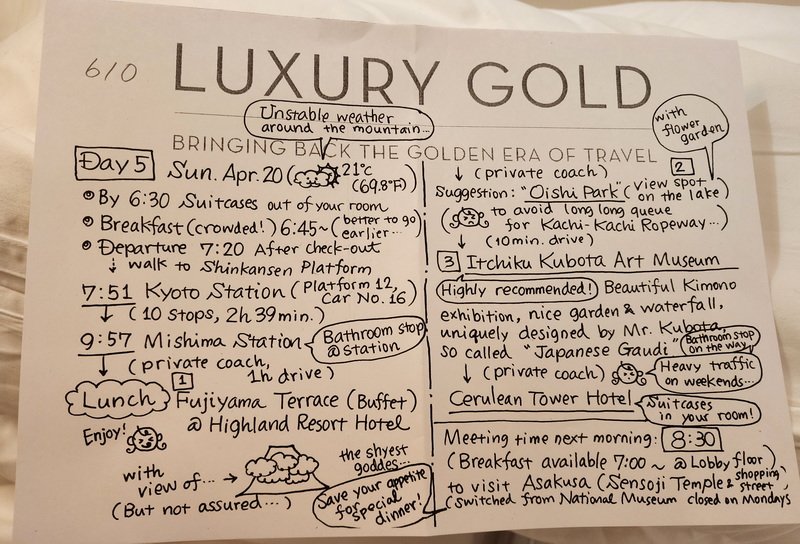 610
LUXURY GOLD
Unstable weather
around the mountain...
BRINGING BACK THE GOLDEN ERA OF TRAVEL
Day 5 Sun. Apr. 20 ( 21°C
(69.8°F))
By 6:30 Suitcases out of your room
Breakfast (crowded!) 6:45~ (better to go
earlier...)
Departure 7:20 After check-out
↓ walk to Shinkansen Platform
7:51 Kyoto Station (Platform 12,
Car No. 16)
↓ (10 stops, 2h 39min.)
9:57 Mishima Station
Bathroom stop
@ station
↓ (private coach,
1h drive)
1
Lunch Fujiyama Terrace (Buffet)
@ Highland Resort Hotel
Enjoy!
with
view of... →
(But not assured...)
the shyest
goddes...
Save your appetite
for special
dinner!
with
flower
garden
↓ (private coach) 2
Suggestion: "Oishi Park" (view spot
on the lake)
( to avoid long long queue
for Kachi-Kachi Ropeway...)
↓ (10 min. drive)
3 Itchiku Kubota Art Museum
Highly recommended! Beautiful Kimono
exhibition, nice garden & waterfall,
uniquely designed by Mr. Kubota,
so called "Japanese Gaudi"
Bathroom stop
on the way
↓ (private coach)
Heavy traffic
on weekends...
Cerulean Tower Hotel
Suitcases
in your room!
Meeting time next morning: 8:30
(Breakfast available 7:00 ~ @ Lobby floor)
to visit Asakusa (Sensoji Temple & shopping
street)
(Switched from National Museum closed on Mondays